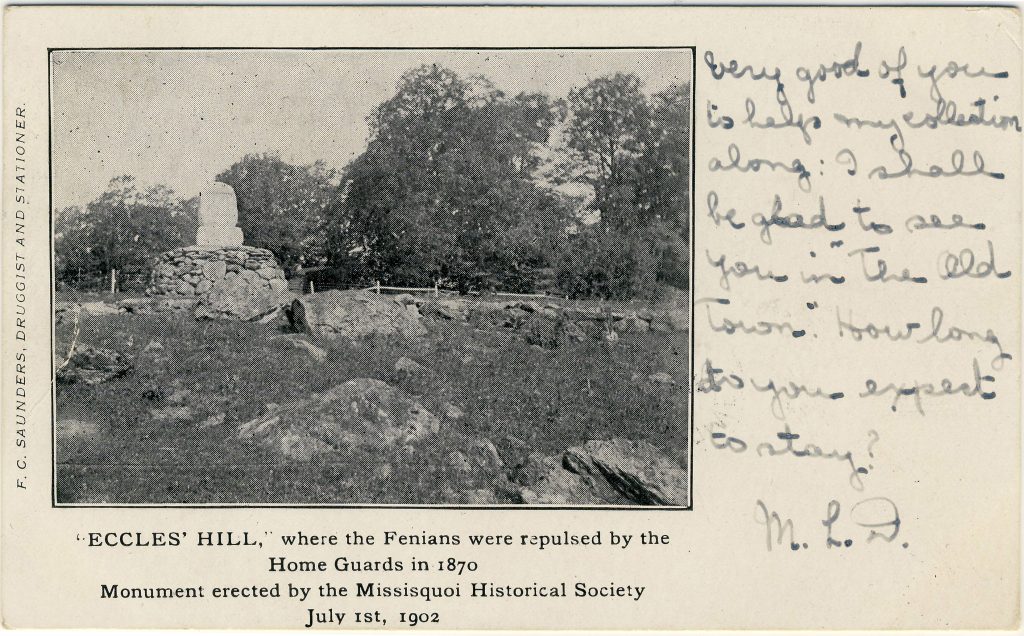 F. C. SAUNDERS, DRUGGIST AND STATIONER.
"ECCLES' HILL," where the Fenians were repulsed by the
Home Guards in 1870
Monument erected by the Missisquoi Historical Society
July 1st, 1902
Very good of you
to help my collection
along: I shall
be glad to see
you in "The Old
Town". How long
do you expect
to stay?
M. L. D.